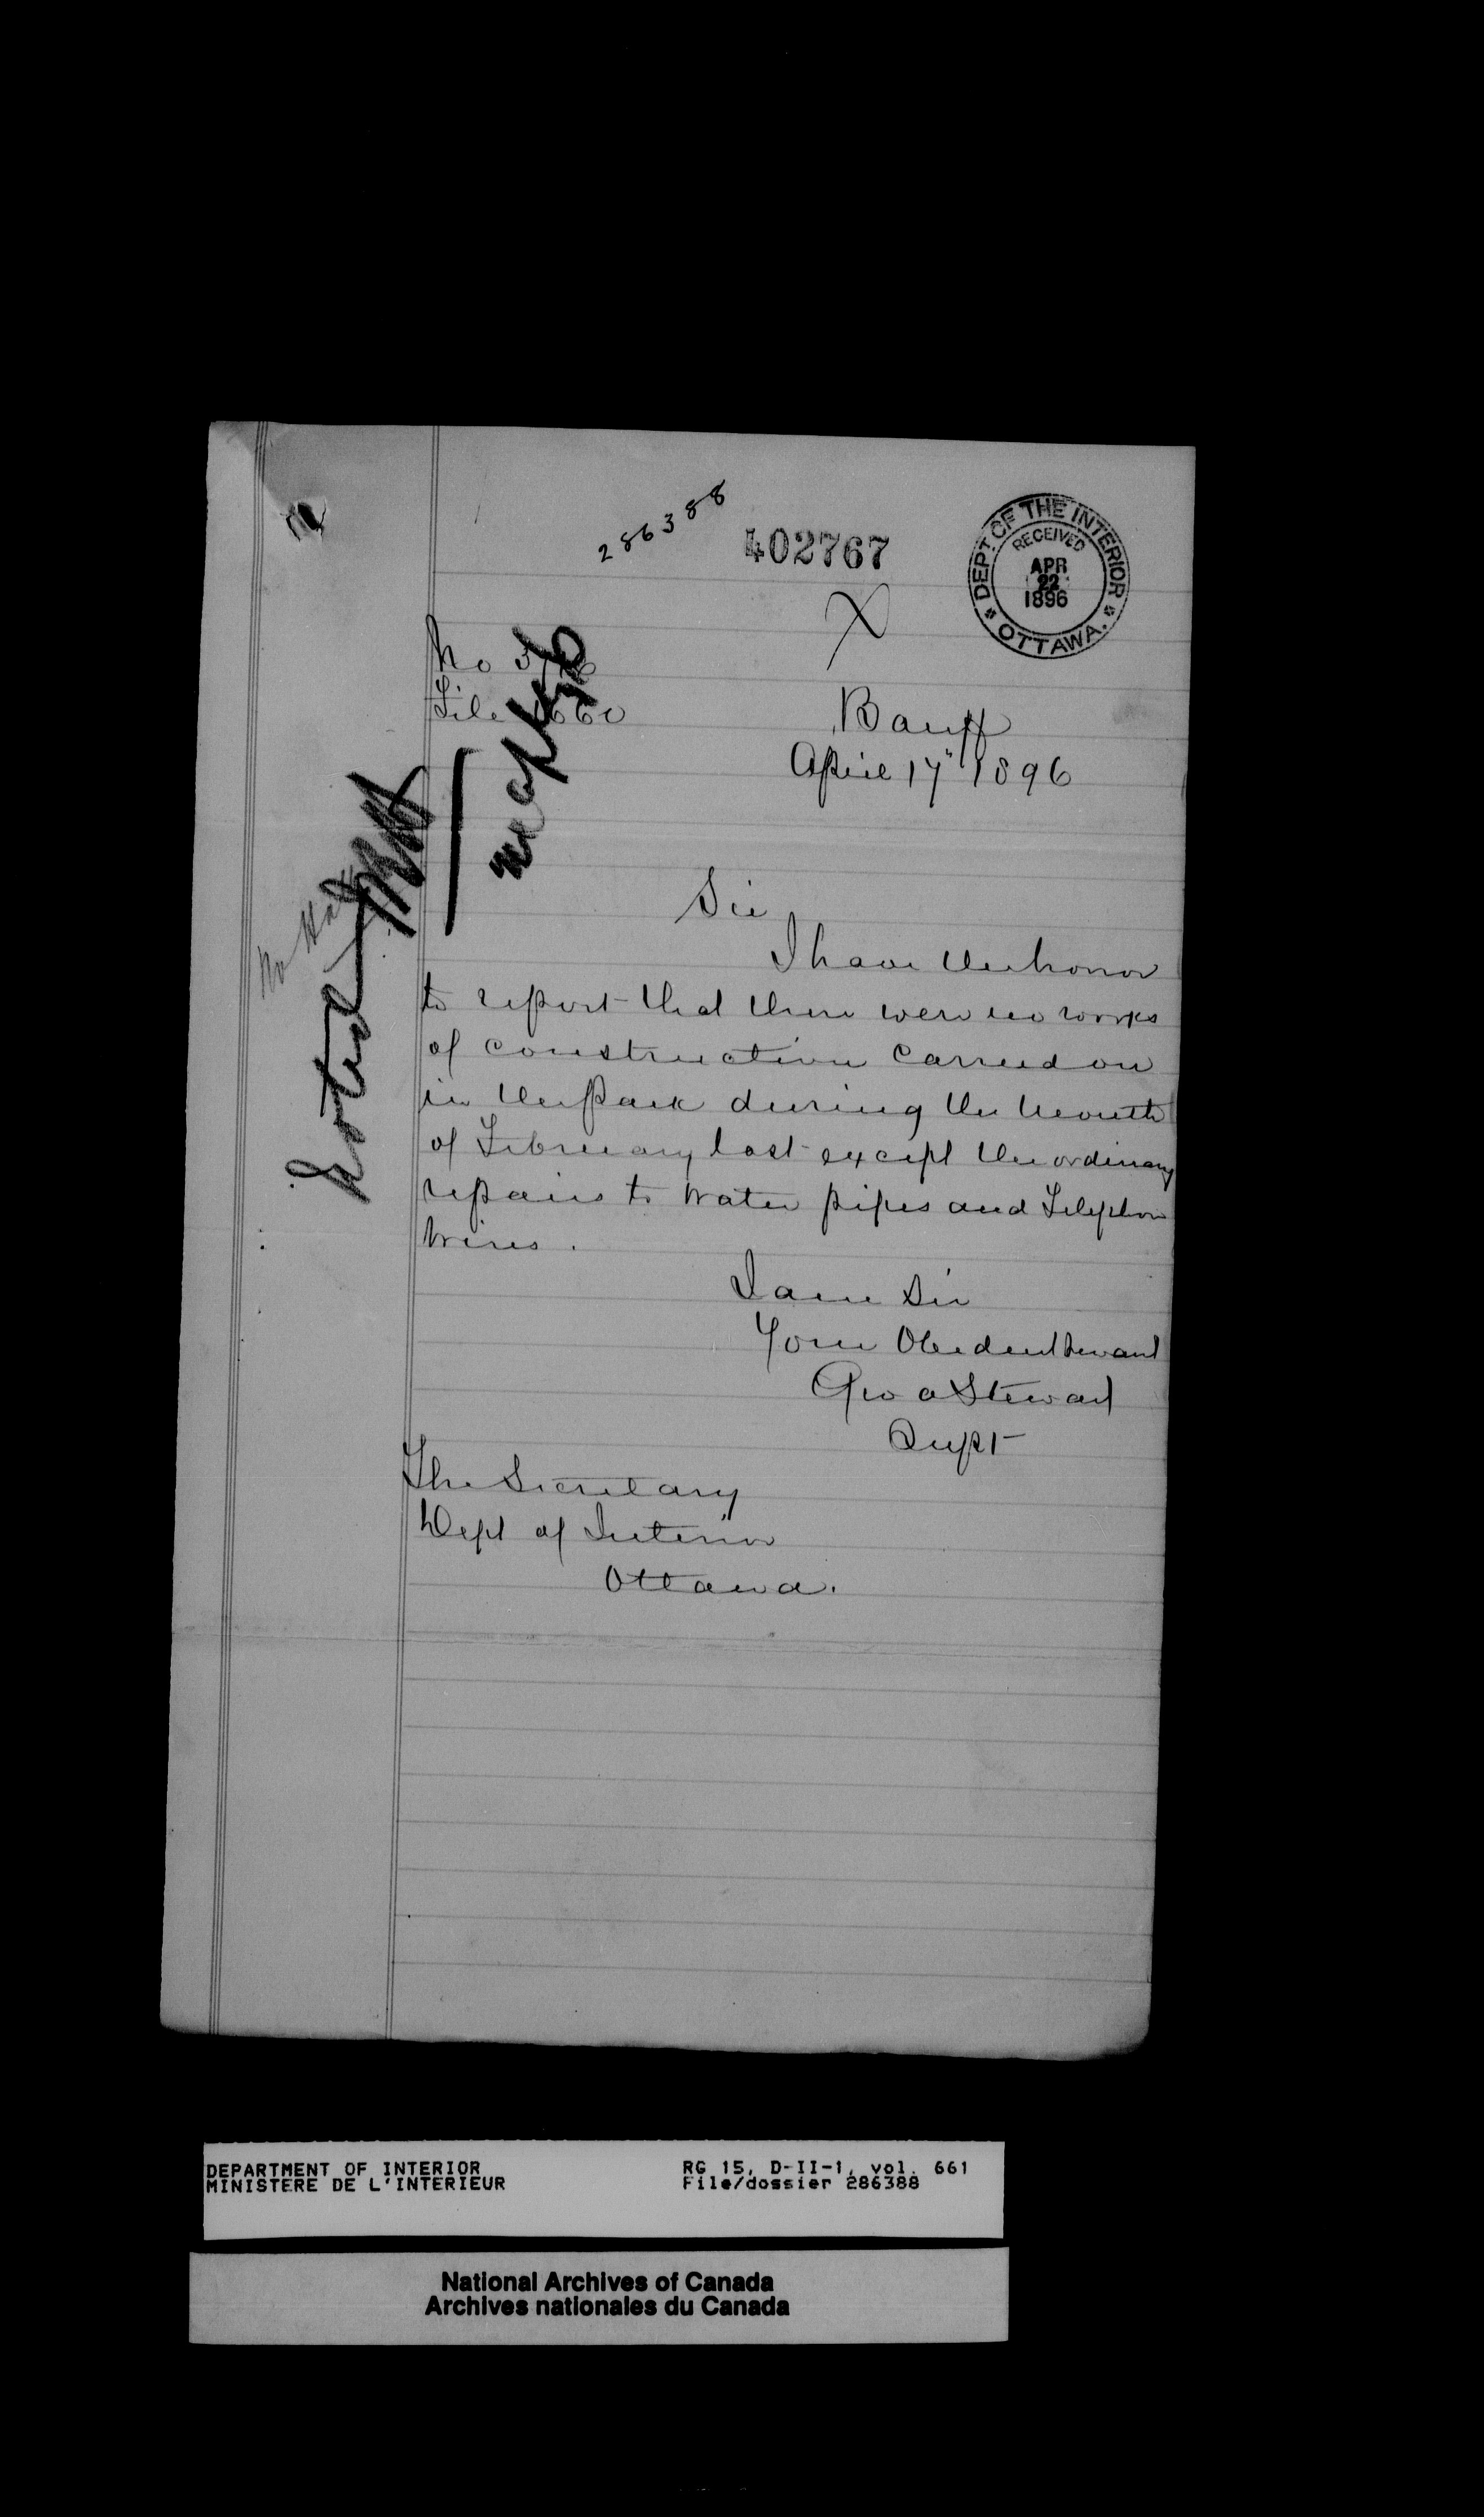 286388
402767
DEPT. OF THE INTERIOR
RECEIVED
APR
22
1896
OTTAWA.
No
File
Banff
April 17" 1896
Sir
I have the honor
to report that there were no works
of construction carried on
in the park during the month
of February last except the ordinary
repairs to water pipes and Telephone
wires.
I am Sir
Your Obedient Servant
Geo A Stewart
Supt
The Secretary
Dept of Interior
Ottawa.
Noted
DEPARTMENT OF INTERIOR
MINISTERE DE L'INTERIEUR
RG 15, D-II-1, vol. 661
File/dossier 286388
National Archives of Canada
Archives nationales du Canada